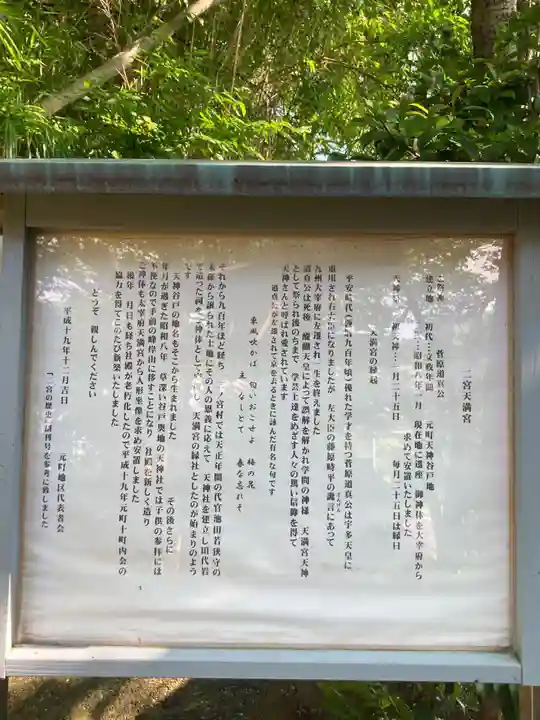 二宮天満宮
ご祭神 菅原道真公
建立地 初代…文政年間 元町天神谷戸地
二…昭和八年一月 現在地に遷座 御神体を大宰府から
求めて安置いたしました
天神祭 初天神…一月二十五日 毎月二十五日は縁日
天満宮の縁起
平安時代(西暦九百年頃)優れた学才を持つ菅原道真公は宇多天皇に
重用され右大臣になりましたが 左大臣の藤原時平の讒言にあって
ざんげん
九州大宰府に左遷され一生を終えました
道真公は死後 醍醐天皇によって誤解を解かれ学問の神様 天満宮天神
として祭られ後のちまで 学芸上達をめざす人々の篤い信仰を得て
天神さんと呼ばれ愛されています
道真公が左遷されて京を去るときに詠んだ有名な句です
東風吹かば 匂いおこせよ 梅の花
主なしとて 春な忘れそ
それから九百年ほど経ち 二ノ宮村では天正年間の代官池田若狭守の
末裔から譲られた土地にその人の恩義に応えて 天神社を建立し
て造った祠をご神体として 天満宮の縁社としたのが始まりのよう
です
天神谷戸の地名もそこから生まれました その後さらに
年月が過ぎた昭和八年 草深い谷戸奥地の天神社では子供の参拝には
不便なので手前の峰岸山に移すことになり 社殿を新しく造り
ご神体も太宰府天満宮から人形坐像を求め安置しました
後年 月日も経ち社殿が老朽化したので平成十九年元町十町内会の
協力を得てこのたび新築いたしました
どうぞ 親しんでください
平成十九年十二月吉日
元町地区代表者会
「二宮の歴史」創刊号を参考に致しました